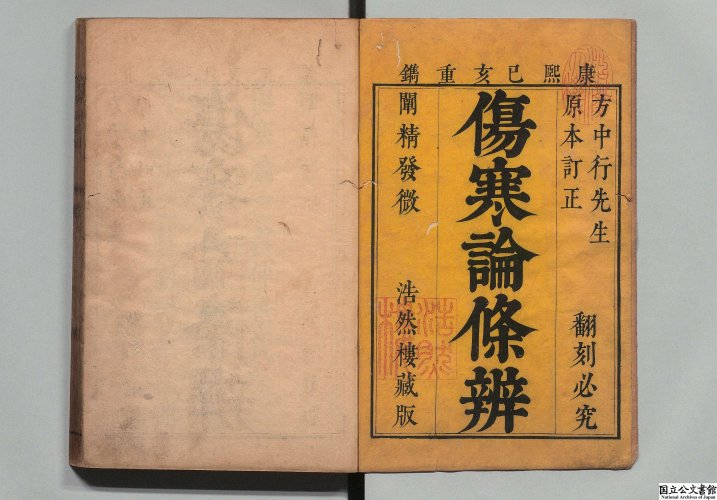 康熙巳亥重鐫
方中行先生
原本訂正
翻刻必究
傷寒論條辨
闡精發微
浩然樓藏版
国立公文書館
National Archives of Japan